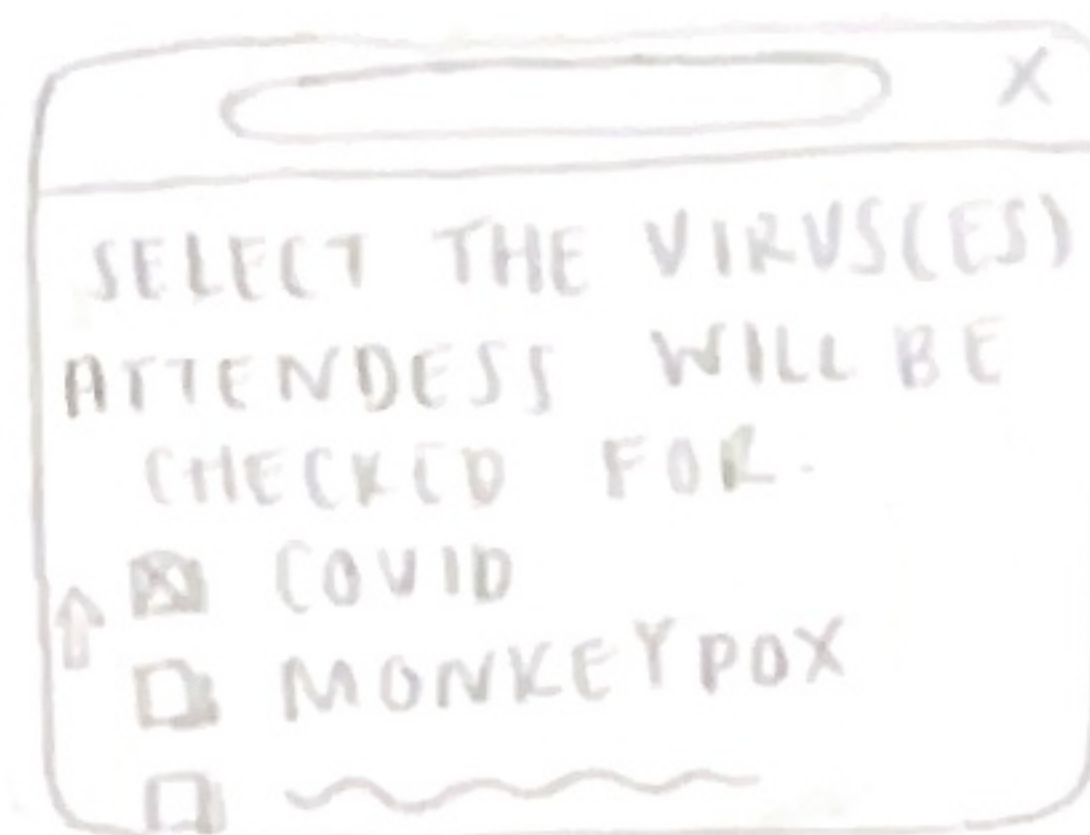 X
SELECT THE VIRUS(ES)
ATTENDESS WILL BE
CHECKED FOR.
COVID
MONKEYPOX